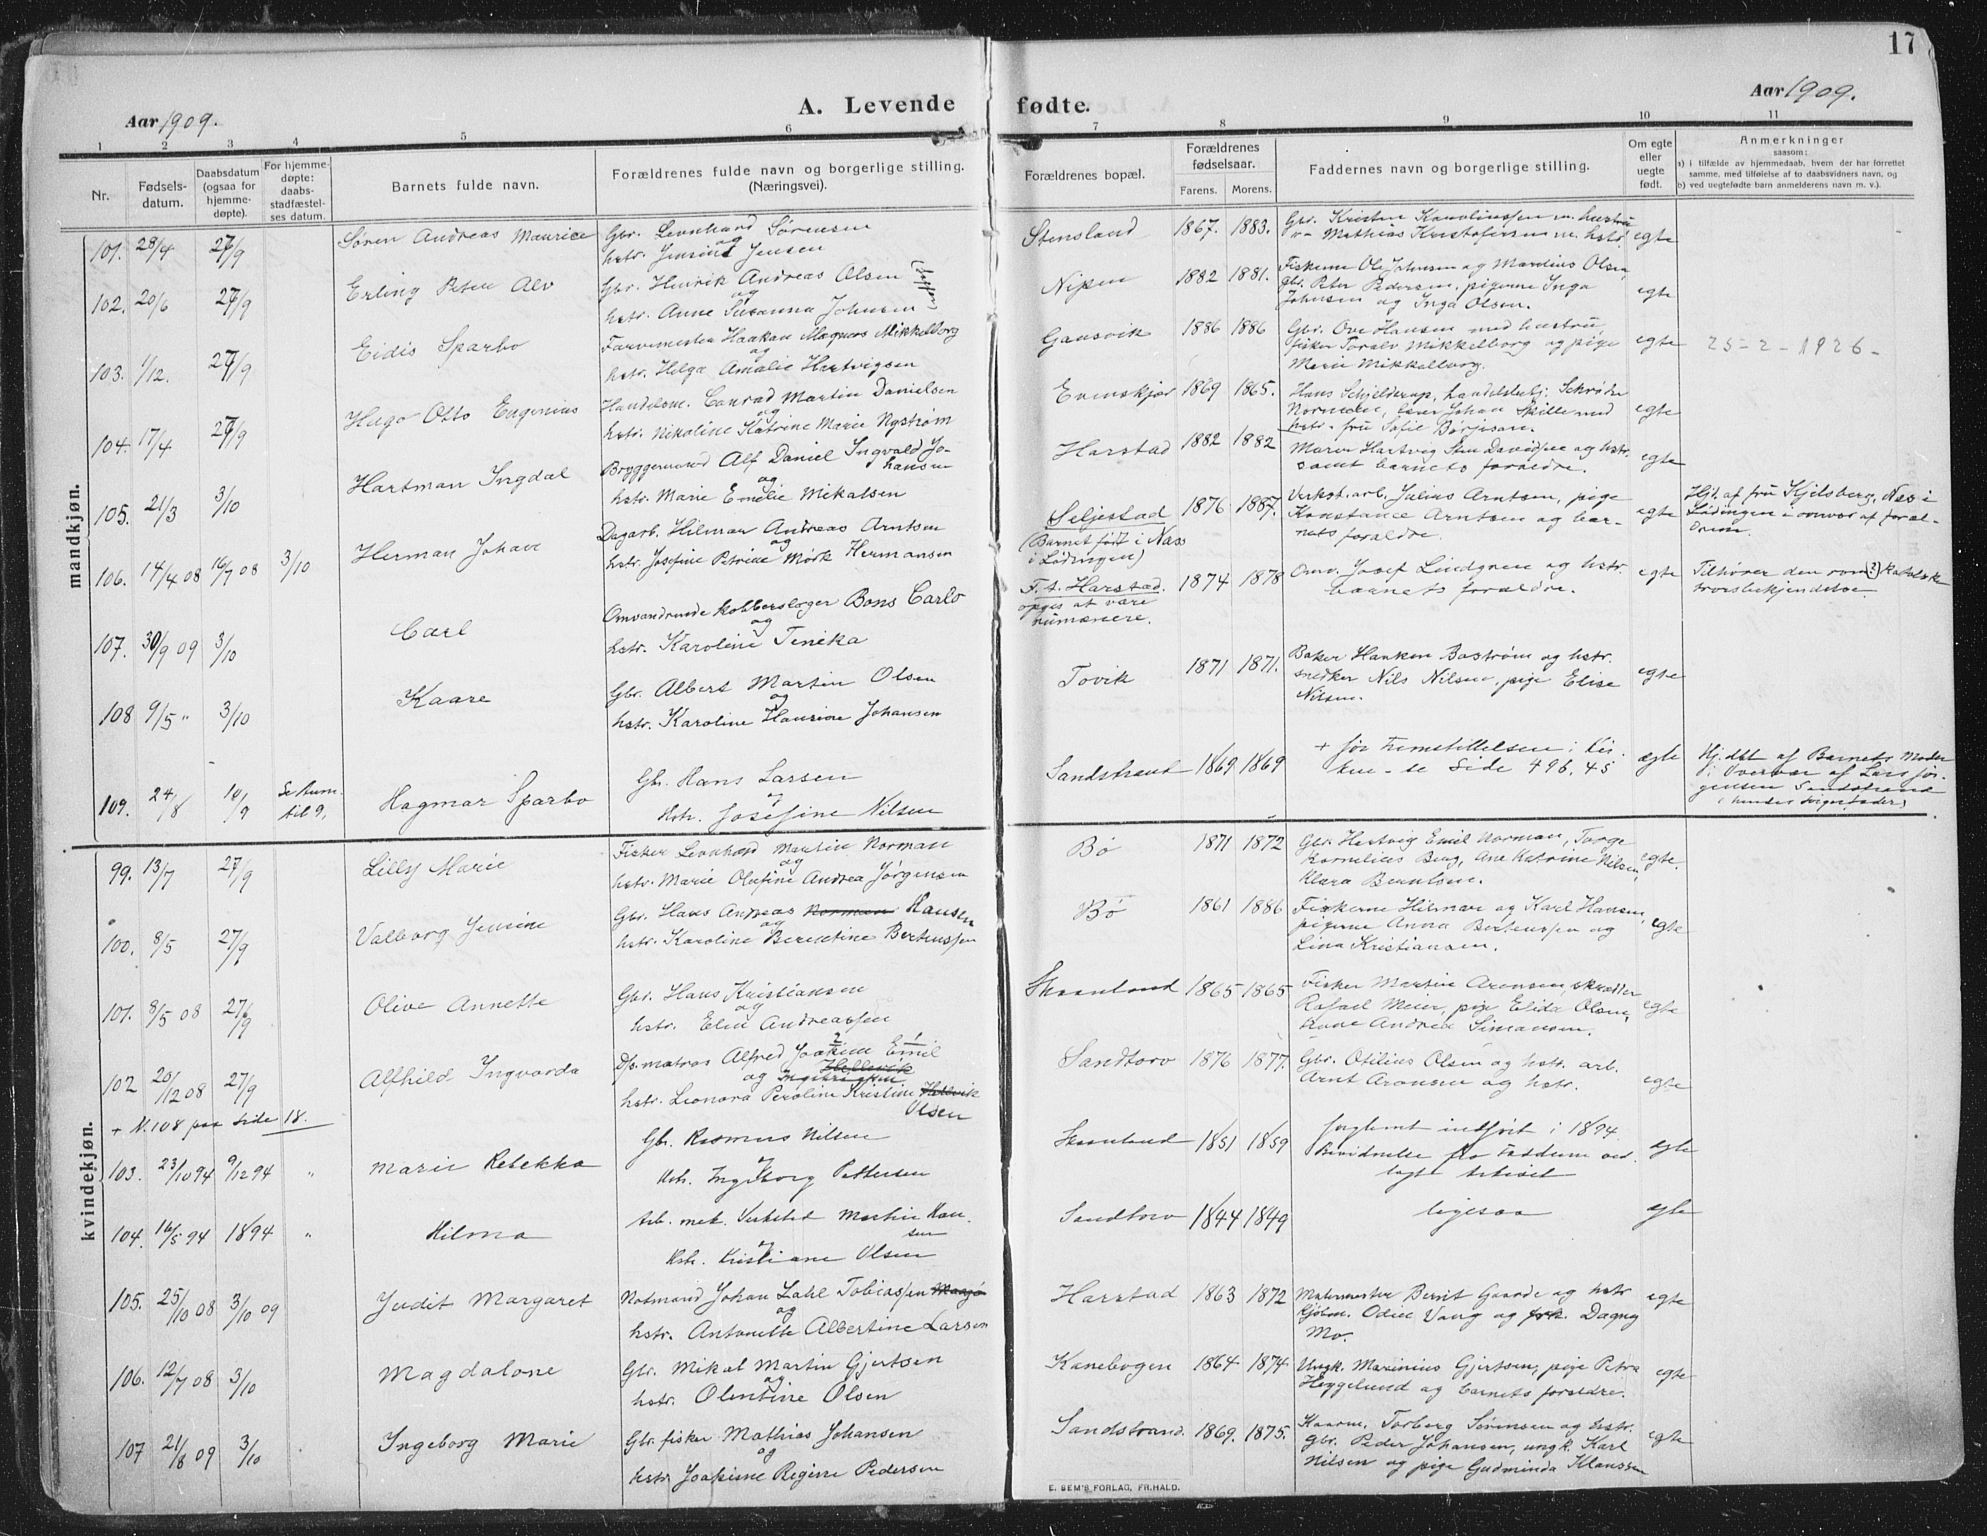 17
Aar 1909.
A. Levende fødte.
Aar 1909.
1 2 3 4 5 6 7 8 9 10 11
Nr.
Fødsels-
datum.
Daabsdatum
(ogsaa for
hjemme-
døpte).
For hjemme-
døpte:
daabs-
stadfæstel-
ses datum.
Barnets fulde navn.
Forældrenes fulde navn og borgerlige stilling.
(Næringsvei).
Forældrenes bopæl.
Forældrenes
fødselsaar.
Farens. Morens.
Faddernes navn og borgerlige stilling.
Om egte
eller
uegte
født.
Anmerkninger
saasom:
a) i tilfælde av hjemmedaab, hvem der har forrettet
samme, med tilføielse af to daabsvidners navn, og
b) ved uegtefødte barn anmelderens navn m. v.).
mandkjøn.
101. 28/4 27/9 Søren Andreas Maurice
Gbr. Leonhard Sørensen
og
hstr. Jensine Jensen
Stensland 1867. 1883.
Gbr. Kristen Karoliussen m. hustru
Mathias Kristofersen m. hstr.
egte
102. 20/6 27/9 Erling Peten Alv
Gbr. Henrik Andreas Olsen
og
hstr. Anne Susanna Johnsen
Nipen 1882 1881.
Fiskerne Ole Johnsen og Mardius Olsen,
gbr. Peter Pedersen, pigerne Inga
Johnsen og Inga Olsen.
egte
103. 1/12. 27/9 Eidis Sparbo
Farvemester Haakon Magnus Mikkelborg
og
hstr. Helga Amalie Hartvigsen
Gansvik 1886 1886
Gbr. Ove Hansen med hustru,
fisker Toralv Mikkelborg og pige
Marie Mikkelborg.
egte
25-2-1926-
104. 17/4 27/9 Hugo Otto Eugenius
Handelsm. Conrad Martin Danielsen
og
hstr. Nikoline Katrine Marie Nystrøm
Evenskjær 1869 1865.
Hans Schjelderup, handelsbetj. Schrøder
Normann, Johan Skille med
hstr. fru Sofie Børjeson.
egte
105. 21/3 3/10 Hartman Ingdal
Bryggemand Alf Daniel Ingvald Jo-
hansen
og
hstr. Marie Emelie Mikalsen
Harstad 1882 1882
Murer Hartvig Sten Davidsen og hstr.
samt barnets forældre.
egte
106. 14/4 08 16/7 08 3/10 Herman Johan
Dagarb. Hilmar Andreas Arntsen
og
hstr. Josefine Petrine Mørk Hermansen
Seljestad 1876 1887.
(Barnet født i Næs
i Lødingen)
Verkst. arb. Julius Arntsen, pige
Konstance Arntsen og bar-
nets forældre.
egte
Hjd. af fru Kjelsberg, Næs i
Lødingen i overvær af foræl-
drene.
107. 30/9 09 3/10 Carl
Omvandrende kobberslager Bons Carlo
og
hstr. Karoline Tinika
F. t. Harstad. 1874 1878
opgis at være
rumænere.
Omv. Josef Lindgren og hstr.
barnets forældre.
egte
Tilhører den rom(?) katolske
trosbekjendelse.
108 9/5 " 3/10 Kaare
Gbr. Albert Martin Olsen
og
hstr. Karoline Hansine Johansen
Tovik 1871 1871.
Baker Haaken Bostrøm og hstr.
snedker Nils Nilsen, pige Elise
Nilsen.
egte
109. 24/8 14/9 Se rum.
til 9. Hagmar Sparbo
Gb. Hans Larsen
og
Hstr. Josefine Nilsen
Sandstrand 1869 1869
+ før Fremstillelsen i Kir-
ken - se Side 496, 45
ægte
Hj. døt af Barnets Moder
i Overvær af Lars Jør-
gensen Sandstrand
(hendes svigerfader)
kvindekjøn.
99. 13/7 27/9 Lilly Marie
Fisker Leonhard Martin Norman
og
hstr. Marie Olufine Andrea Jørgensen
Bø 1871 1872
Gbr. Hertvig Emil Norman, Torge
Kornelius Berg, Ane Katrine Nilsen,
Klara Berntsen.
egte.
100. 8/5 27/9 Valborg Jensine
Gbr. Hans Andreas Norman Hansen
og
hstr. Karoline Berentine Bertenssen
Bø 1861 1886
Fiskerne Hilmar og Karl Hansen,
pigerne Anna Bertenssen og
Lina Kristiansen.
egte
101. 8/5 08 27/9 Olive Annette
Gbr. Hans Kristiansen
og
hstr. Elen Andreassen
Skaanland 1865 1865
Fisker Martin Aronsen, skrædder
Rafael Meier, pige Elida Olsen,
Andrea Simonsen.
egte
102 20/12 08 27/9 Alfhild Ingvarda
Dp. matros Alfred Joakim Emil
og
hstr. Leonora Peroline Kristine Hellevik
Olsen
Sandtorv 1876 1877.
Gbr. Otilius Olsen og hstr. arb.
Arnt Aronsen og hstr.
egte
+ N. 108 paa side 18.
103. 23/10 94 9/12 94 " Marie Rebekka
Gb. Rasmus Nilsen
og
Hstr. Ingeborg Pettersen
Skaanland 1851 1859
forglemt indført i 1894
Bevidnelse fra Fadderne ved-
lagt Arkivet
egte
104. 16/5 94 1894 " Hilma
Arb. mek. Verksted Martin Han-
sen
og
Hstr. Kristiane Olsen
Sandtorv 1844 1849
ligesaa
egte
105. 25/10 08 3/10 09 Judit Margaret
Notmand Johan Lahl Tobiassen
og
hstr. Antonette Albertine Larsen
Harstad 1863 1872
Malermester Bernt Gaarde og hstr
kjøbm. Odin Vang og frk. Dagny
Mo.
egte
106. 12/7 08 3/10 Magdalone
Gbr. Mikal Martin Gjertsen
og
hstr. Olentine Olsen
Kanebogen 1864 1874
Ungk. Marinius Gjertsen, pige Petra
Heggelund og barnets forældre.
egte
107 21/8 09 3/10 Ingeborg Marie
Gbr. fisker Mathias Johansen
og
hstr. Joakime Regine Pedersen
Sandstrand. 1869. 1875.
Kaarm. Torberg Sørensen og hstr.
Gbr. Peder Johansen, ungk. Karl
Nilsen og pige Gudminda Klaussen
egte
E. SEM'S FORLAG, FR.HALD.